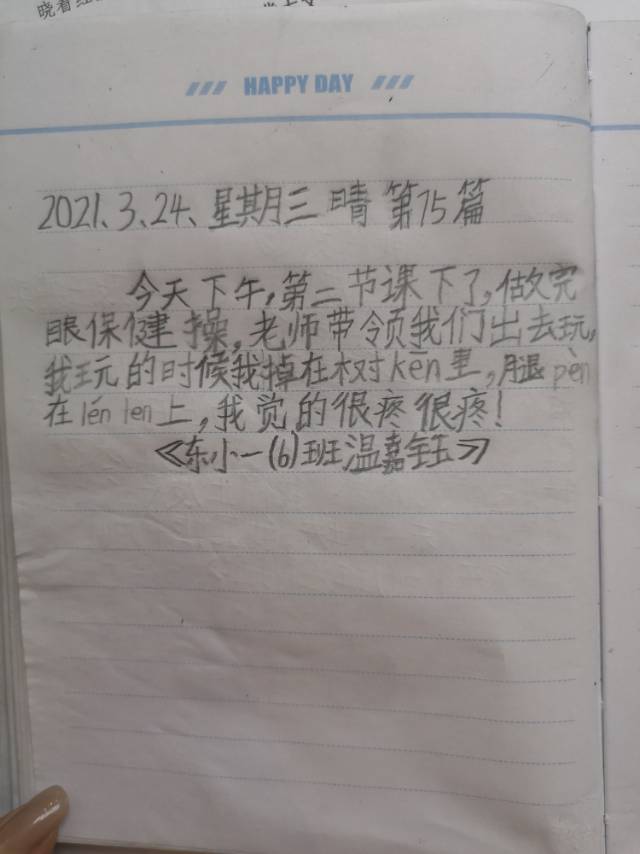 HAPPY DAY
2021、3、24、星期三 晴 第75篇
今天下午,第二节课下了,做完
眼保健操,老师带领我们出去玩,
我玩的时候我掉在树kēn里,腿pèn
在lén len上,我觉的很疼很疼!
《东小一(6)班温嘉钰》